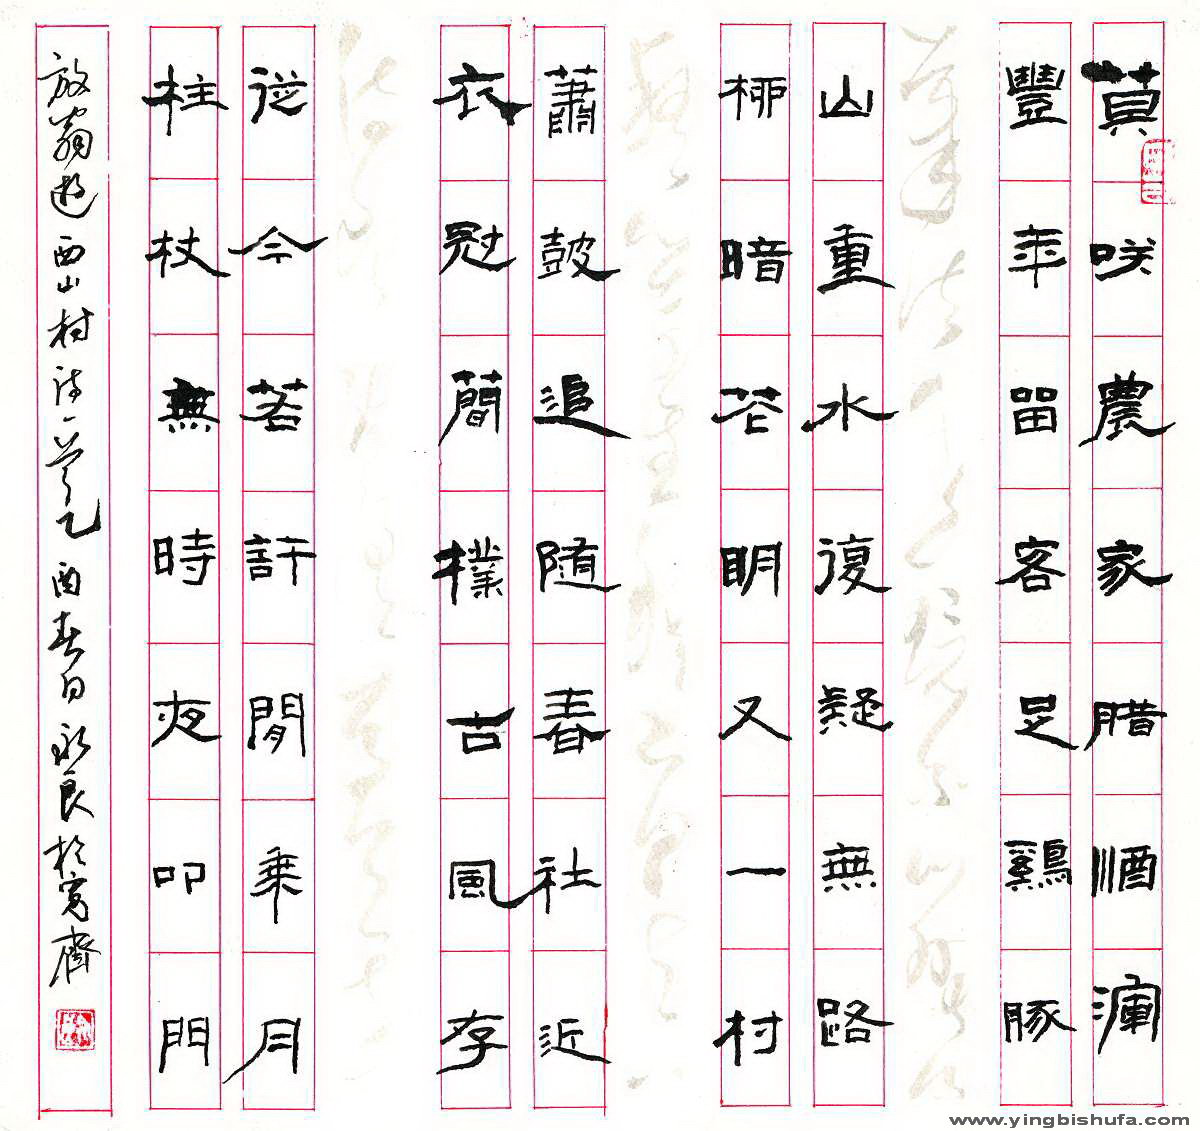 莫咲農家腊酒渾
豐年留客足鷄豚
山重水複疑無路
柳暗花明又一村
蕭鼓追随春社近
衣冠簡樸古風存
從今若許閒乘月
柱杖無時夜叩門
放翁遊西山村詩一首乙酉春日永良於寬齋
www.yingbishufa.com